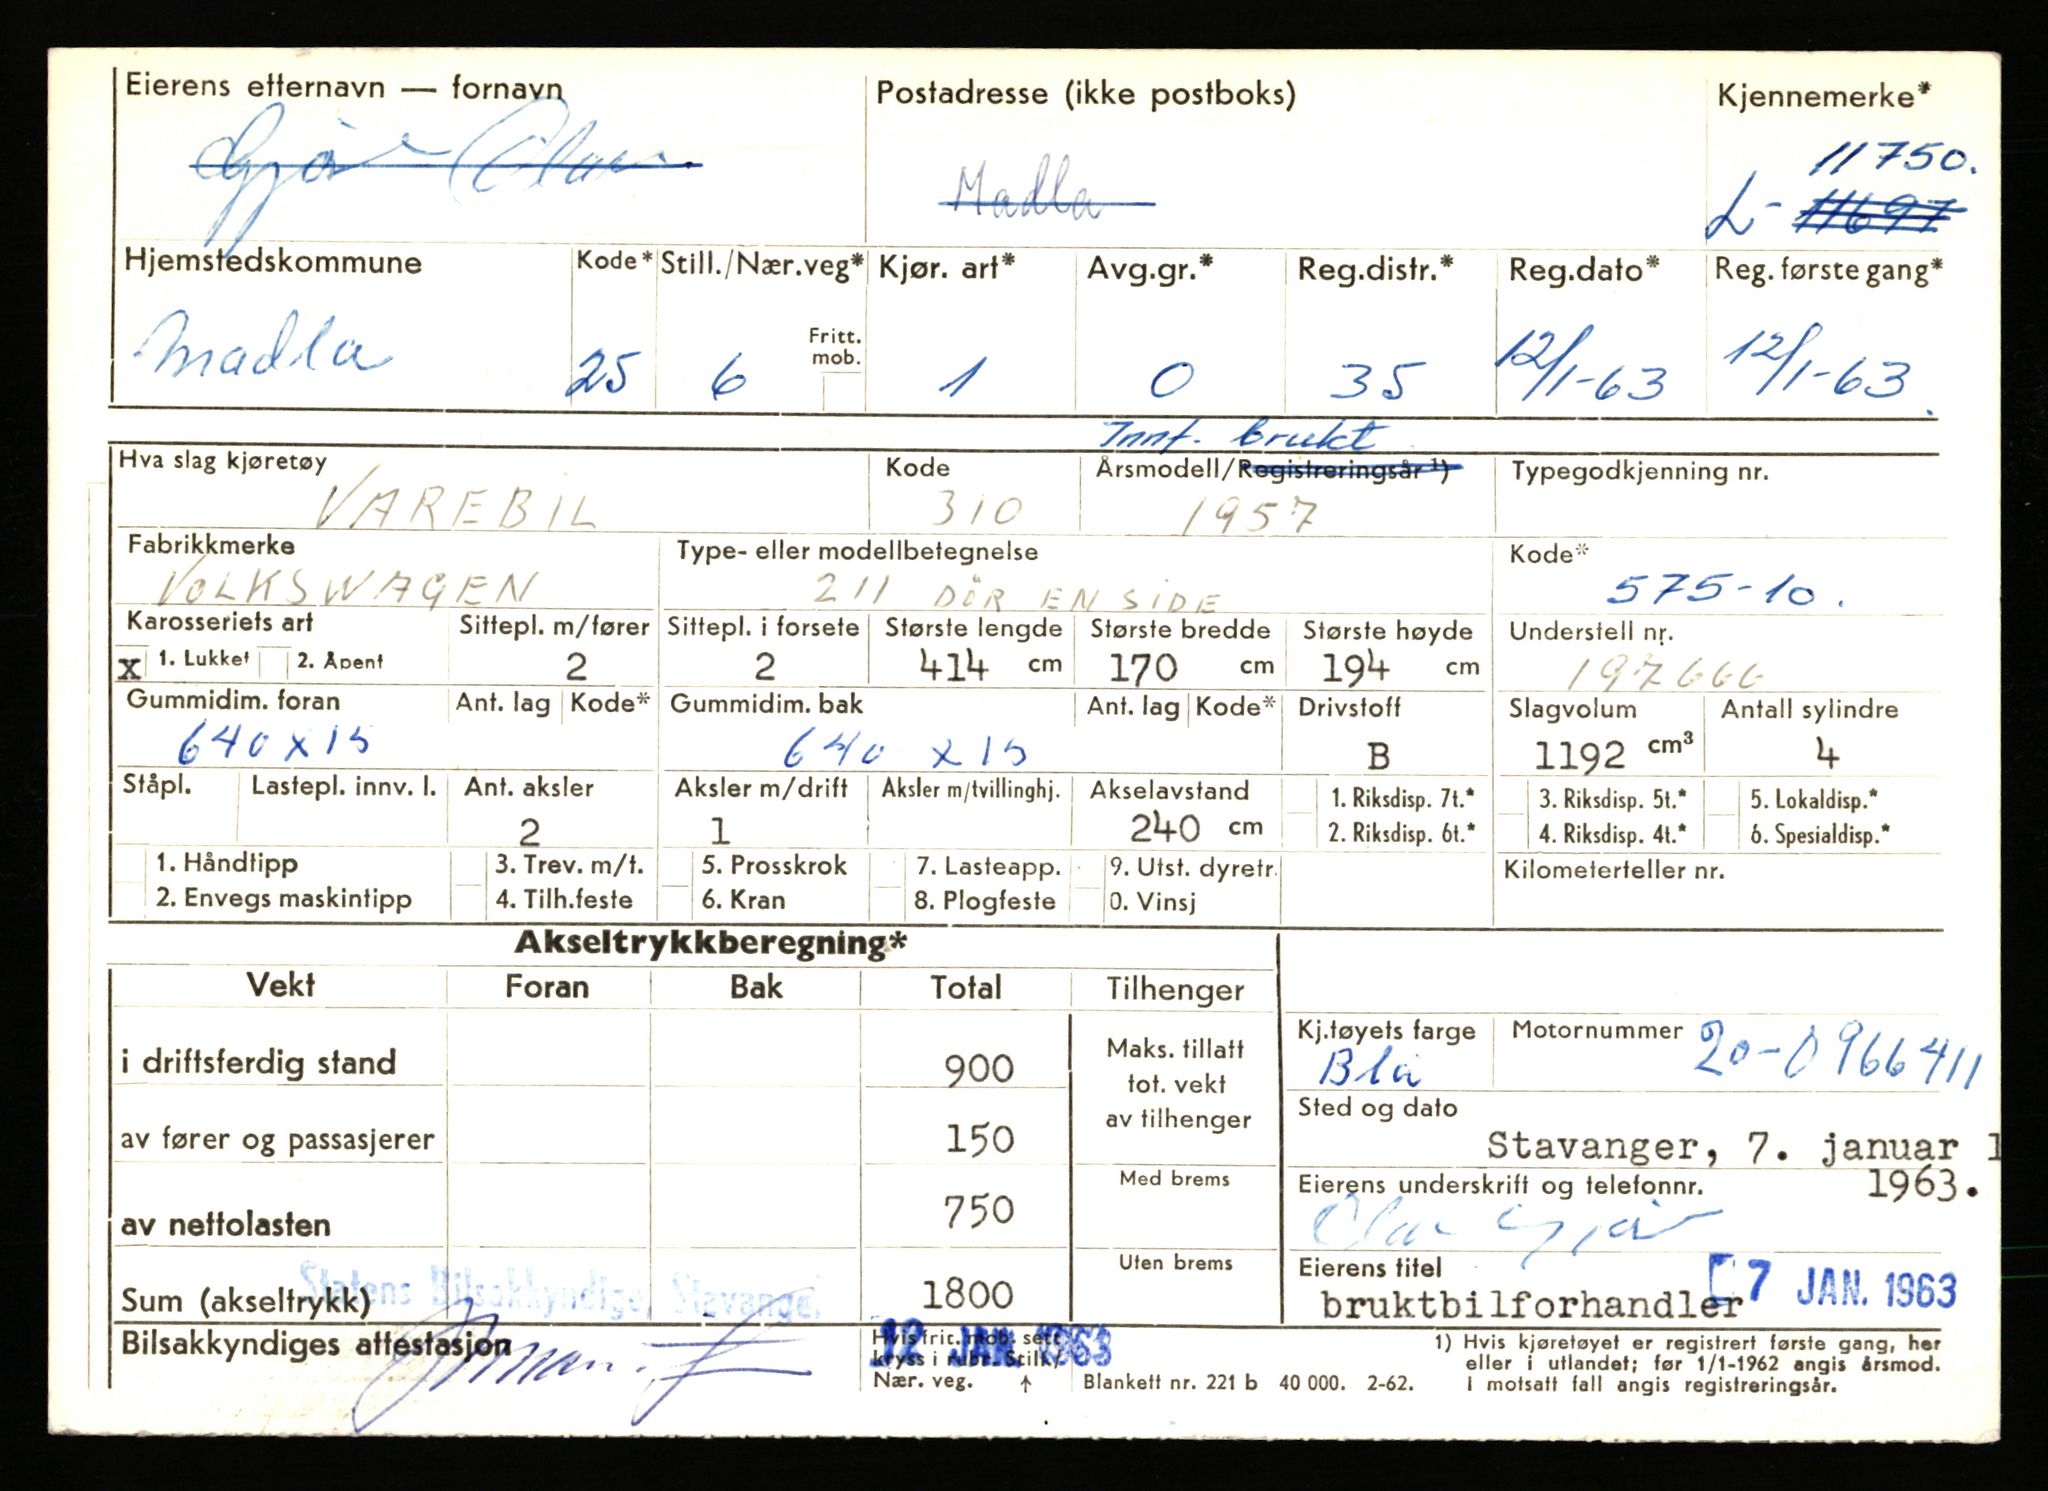 Eierens etternavn — fornavn Postadresse (ikke postboks) Kjennemerke*
Gjør Olav Madla 11750.
L- 11697
Hjemstedskommune Kode* Still./Nær.veg* Kjør. art* Avg.gr.* Reg.distr.* Reg.dato* Reg. første gang*
Fritt. mob.
Madla 25 6 1 0 35 12/1-63 12/1-63.
Innf. brukt
Hva slag kjøretøy Kode Årsmodell/Registreringsår 1) Typegodkjenning nr.
VAREBIL 310 1957
Fabrikkmerke Type- eller modellbetegnelse Kode*
VOLKSWAGEN 211 DÖR EN SIDE 575-10.
Karosseriets art Sittepl. m/fører Sittepl. i forsete Største lengde Største bredde Største høyde Understell nr.
X 1. Lukket 2. Åpent 2 2 414 cm 170 cm 194 cm 197666
Gummidim. foran Ant. lag Kode* Gummidim. bak Ant. lag Kode* Drivstoff Slagvolum Antall sylindre
640 x 15 640 x 15 B 1192 cm³ 4
Ståpl. Lastepl. innv. l. Ant. aksler Aksler m/drift Aksler m/tvillinghj. Akselavstand 1. Riksdisp. 7t.* 3. Riksdisp. 5t.* 5. Lokaldisp.*
2 1 240 cm 2. Riksdisp. 6t.* 4. Riksdisp. 4t.* 6. Spesialdisp.*
1. Håndtipp 3. Trev. m/t. 5. Prosskrok 7. Lasteapp. 9. Utst. dyretr. Kilometerteller nr.
2. Envegs maskintipp 4. Tilh.feste 6. Kran 8. Plogfeste 0. Vinsj
Akseltrykkberegning*
Vekt Foran Bak Total Tilhenger
Kj.tøyets farge Motornummer
i driftsferdig stand 900 Maks. tillatt tot. vekt av tilhenger Blå 20-0966411
Sted og dato
av fører og passasjerer 150 Stavanger, 7. januar 1
1963.
Med brems Eierens underskrift og telefonnr.
av nettolasten 750 Olav Gjør
Uten brems Eierens titel 7 JAN. 1963
Statens Bilsakkyndige, Stavanger.
Sum (akseltrykk) 1800 bruktbilforhandler
Bilsakkyndiges attestasjon 12 JAN. 1963
Hvis frit. mob. sett
kryss i rubr. Still./
Nær. veg. ↑ Blankett nr. 221 b 40 000. 2-62.
1) Hvis kjøretøyet er registrert første gang, her
eller i utlandet; før 1/1-1962 angis årsmod.
I motsatt fall angis registreringsår.